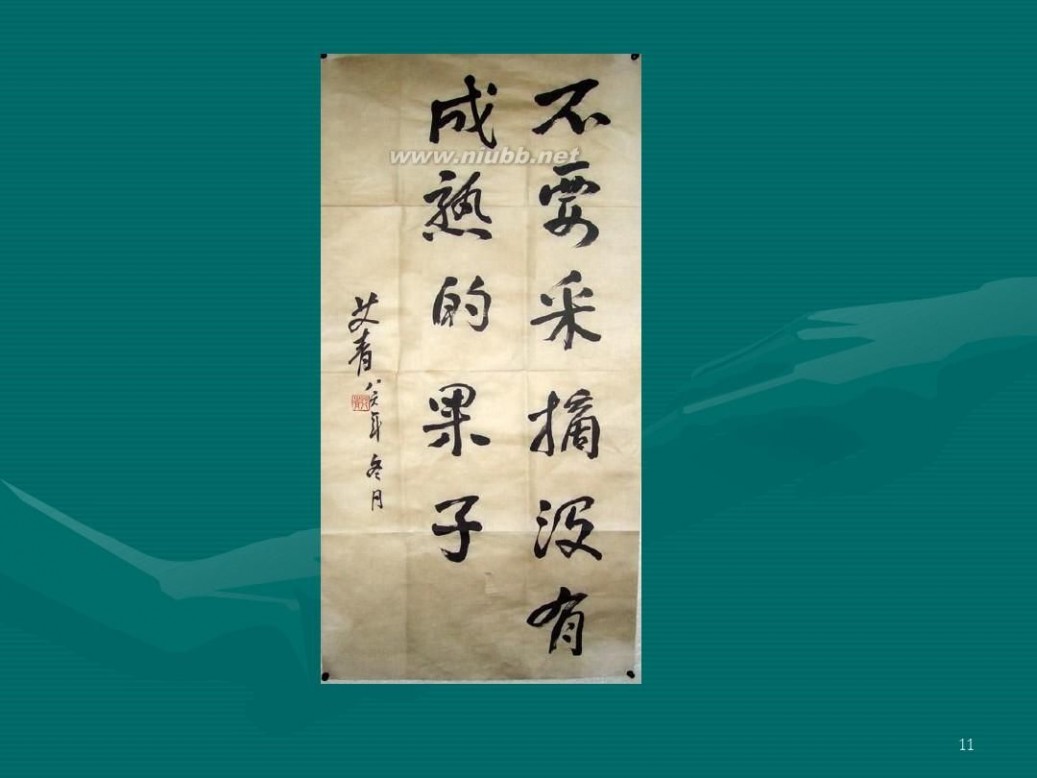 不要采摘没有
成熟的果子
艾青
年冬月
www.niubb.net
11